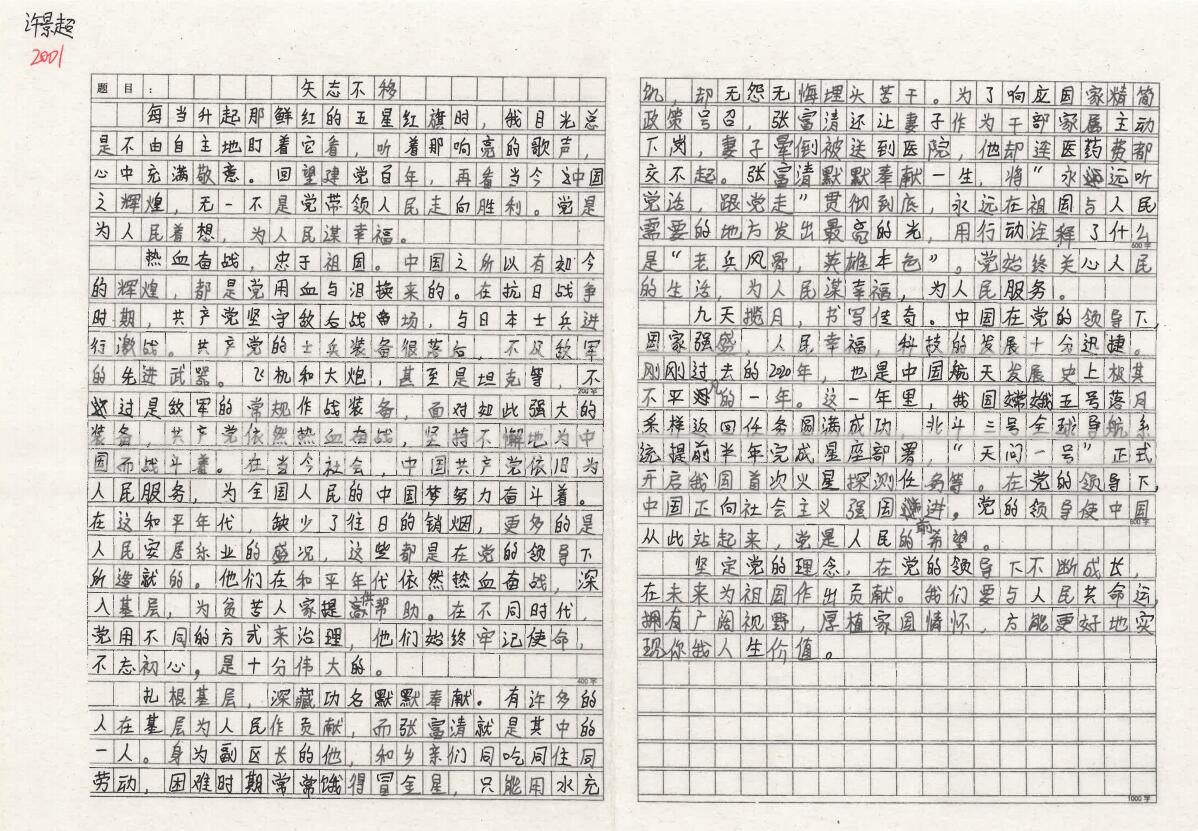 许景超
2001
题目： 矢志不移
每当升起那鲜红的五星红旗时，我目光总
是不由自主地盯着它看，听着那响亮的歌声，
心中充满敬意。回望建党百年，再看当今中国
之辉煌，无一不是党带领人民走向胜利。党是
为人民着想，为人民谋幸福。
热血奋战，忠于祖国。中国之所以有如今
的辉煌，都是党用血与泪换来的。在抗日战争
时期，共产党坚守敌后战场，与日本士兵进
行激战。共产党的士兵装备很落后，不及敌军
的先进武器。飞机和大炮，甚至是坦克等，不
200字
过是敌军的常规作战装备，面对如此强大的
装备，共产党依然热血奋战，坚持不懈地为中
国而战斗着。在当今社会，中国共产党依旧为
人民服务，为全国人民的中国梦努力奋斗着。
在这和平年代，缺少了往日的销烟，更多的是
人民安居乐业的盛况，这些都是在党的领导下
所造就的。他们在和平年代依然热血奋战，深
入基层，为贫苦人家提供帮助。在不同时代，
党用不同的方式来治理，他们始终牢记使命，
不忘初心，是十分伟大的。
400字
扎根基层，深藏功名默默奉献。有许多的
人在基层为人民作贡献，而张富清就是其中的
一人。身为副区长的他，和乡亲们同吃同住同
劳动，困难时期常常饿得冒金星，只能用水充
饥，却无怨无悔埋头苦干。为了响应国家精简
政策号召，张富清还让妻子作为干部家属主动
下岗，妻子晕倒被送到医院，他却连医药费都
交不起。张富清默默奉献一生，将“永远听
党话，跟党走”贯彻到底，永远在祖国与人民
需要的地方发出最亮的光，用行动诠释了什么
600字
是“老兵风骨，英雄本色”。党始终关心人民
的生活，为人民谋幸福，为人民服务。
九天揽月，书写传奇。中国在党的领导下，
国家强盛，人民幸福，科技的发展十分迅捷。
刚刚过去的2020年，也是中国航天发展史上极其
不平凡的一年。这一年里，我国嫦娥五号落月
采样返回任务圆满成功，北斗三号全球导航系
统提前半年完成星座部署，“天问一号”正式
开启我国首次火星探测任务等。在党的领导下，
中国正向社会主义强国前进。党的领导使中国
800字
从此站起来，党是人民的希望。
坚定党的理念，在党的领导下不断成长，
在未来为祖国作出贡献。我们要与人民共命运，
拥有广阔视野，厚植家国情怀，方能更好地实
现你我人生价值。
1000字